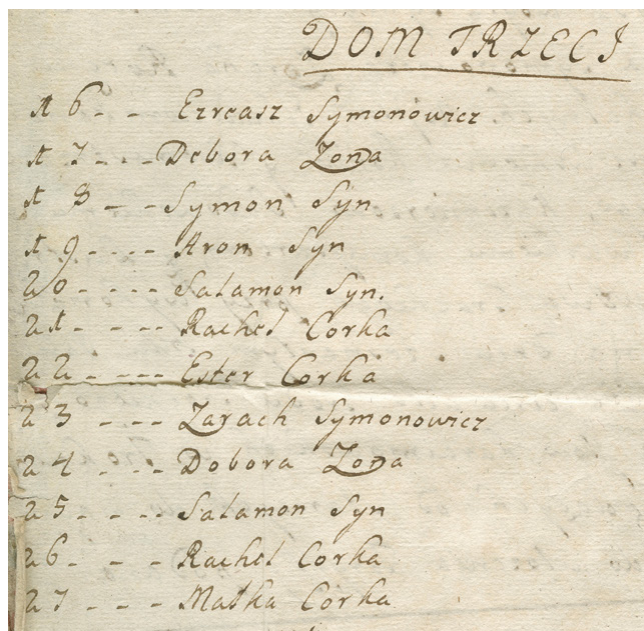 DOM TRZECI
16 - - Ezreasz Symonowicz
17 - - - Debora Zona
18 - - - Symon Syn
19 - - - - Aron Syn
20 - - - - - Salamon Syn.
21 - - - - - Rachel Corka
22 - - - - - Ester Corka
23 - - - - Zarach Symonowicz
24 - - - - Dobora Zona
25 - - - - - Salamon Syn
26 - - - Rachel Corka
27 - - - - Matka Corka